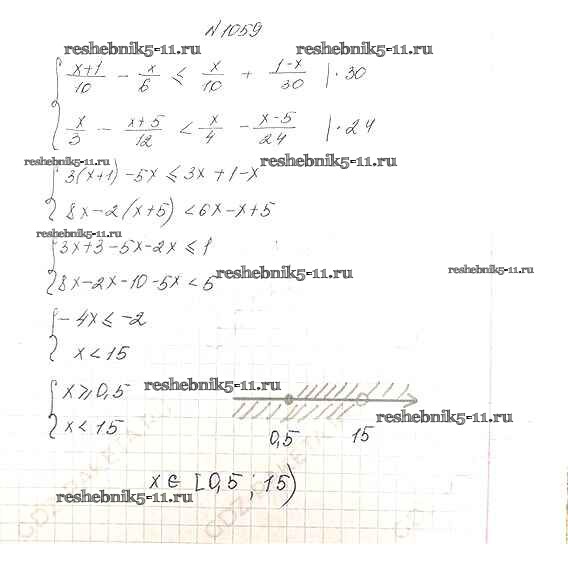 №1059
reshebnik5-11.ru reshebnik5-11.ru
{ (x+1)/10 - x/6 ≤ x/10 + (1-x)/30 | · 30
x/3 - (x+5)/12 < x/4 - (x-5)/24 | · 24
reshebnik5-11.ru reshebnik5-11.ru
{ 3(x+1) - 5x ≤ 3x + 1 - x
8x - 2(x+5) < 6x - x + 5
reshebnik5-11.ru
{ 3x + 3 - 5x - 2x ≤ 1
reshebnik5-11.ru reshebnik5-11.ru
8x - 2x - 10 - 5x < 5
{ - 4x ≤ -2
x < 15
reshebnik5-11.ru
{ x ≥ 0,5
reshebnik5-11.ru
x < 15
0,5 15
x ∈ [0,5 ; 15)
reshebnik5-11.ru